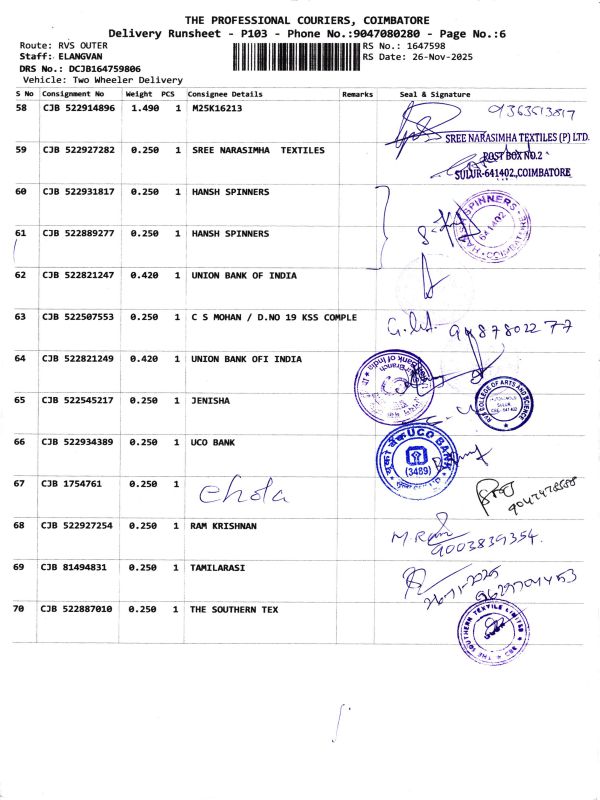 THE PROFESSIONAL COURIERS, COIMBATORE
Delivery Runsheet - P103 - Phone No.:9047080280 - Page No.:6
Route: RVS OUTER
RS No.: 1647598
Staff: ELANGVAN
RS Date: 26-Nov-2025
DRS No.: DCJB164759806
Vehicle: Two Wheeler Delivery
S No Consignment No Weight PCS Consignee Details Remarks Seal & Signature
58 CJB 522914896 1.490 1 M25K16213
9363513817
SREE NARASIMHA TEXTILES (P) LTD.
59 CJB 522927282 0.250 1 SREE NARASIMHA TEXTILES
POST BOX NO.2
SULUR-641402, COIMBATORE
60 CJB 522931817 0.250 1 HANSH SPINNERS
61 CJB 522889277 0.250 1 HANSH SPINNERS
641402
62 CJB 522821247 0.420 1 UNION BANK OF INDIA
63 CJB 522507553 0.250 1 C S MOHAN / D.NO 19 KSS COMPLE
9487802277
64 CJB 522821249 0.420 1 UNION BANK OFI INDIA
65 CJB 522545217 0.250 1 JENISHA
RVS COLLEGE OF ARTS AND SCIENCE
SULUR
66 CJB 522934389 0.250 1 UCO BANK
UCO BANK
(3489)
67 CJB 1754761 0.250 1
Chola
68 CJB 522927254 0.250 1 RAM KRISHNAN
M Ram
9003839354.
69 CJB 81494831 0.250 1 TAMILARASI
26-11-2025
70 CJB 522887010 0.250 1 THE SOUTHERN TEX
THE SOUTHERN TEXTILE LIMITED
CBE